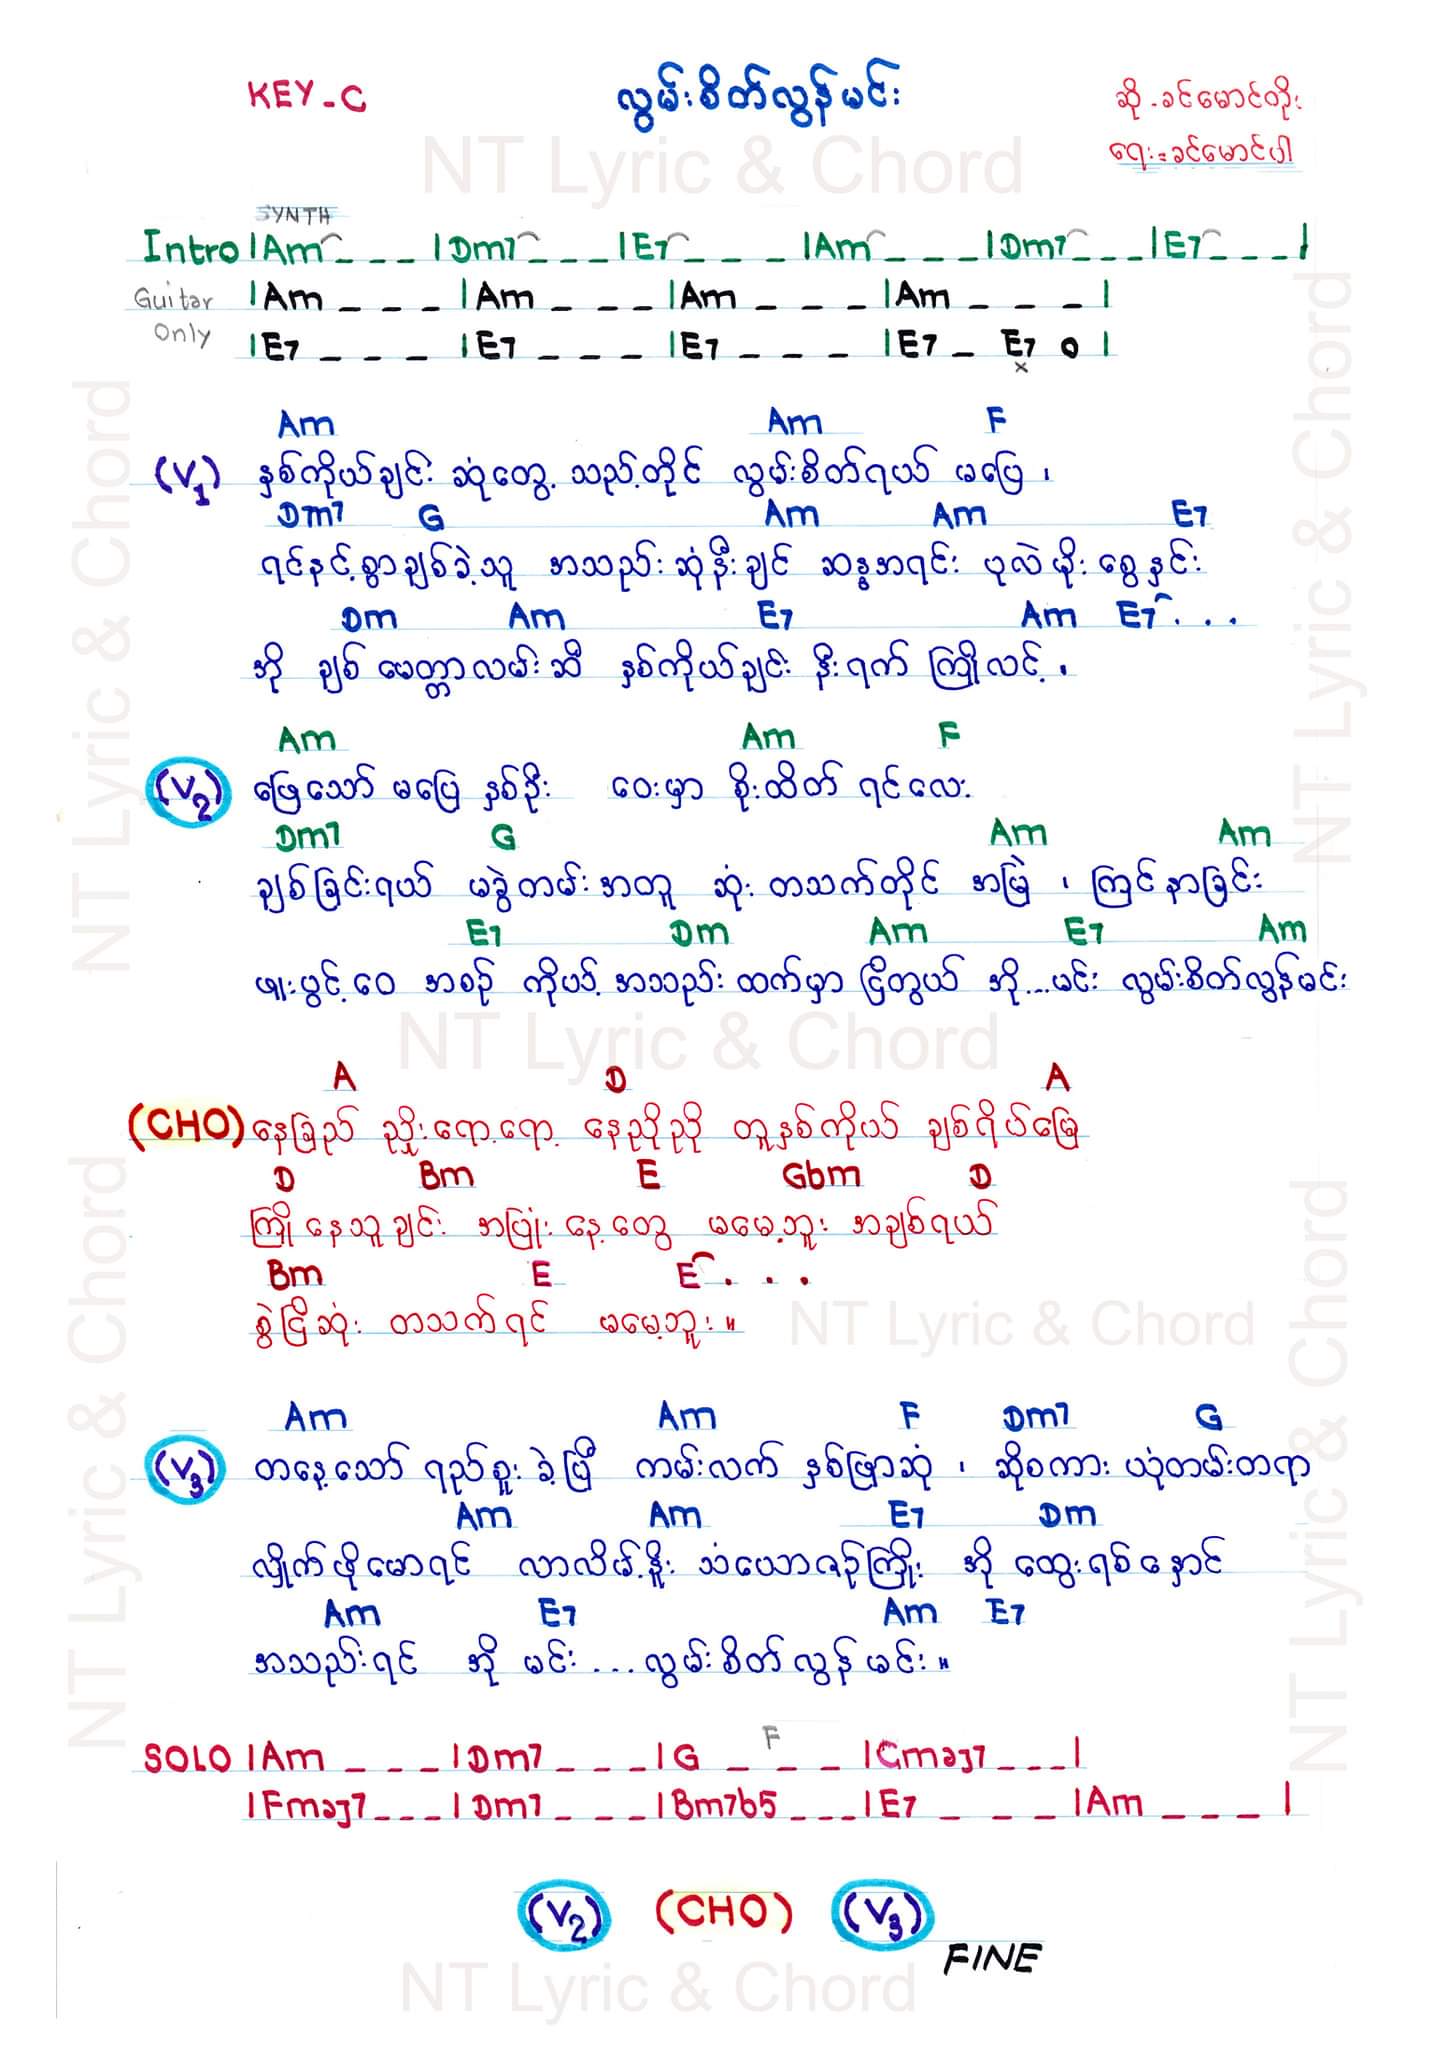 KEY-C
လွမ်းစိတ်လွန်မင်း
ဆို - ခင်မောင်တိုး
ရေး = ခင်မောင်
NT Lyric & Chord
SYNTH
Intro |Am _ _ _ |Dm7 _ _ _ |E7 _ _ _ |Am _ _ _ |Dm7 _ _ _ |E7 _ _ _ |
Guitar Only |Am _ _ _ |Am _ _ _ |Am _ _ _ |Am _ _ _ |
|E7 _ _ _ |E7 _ _ _ |E7 _ _ _ |E7 _ E7 0 |
x
Am Am F
(V1) နှစ်ကိုယ်ချင်း ဆုံတွေ့ သည့်တိုင် လွမ်းစိတ်ရယ် မပြေ ၊
Dm7 G Am Am E7
ရင်နင့်စွာချစ်ခဲ့သူ အသည်းဆုံနီးချင် ဆန္ဒအရင်း ပုလဲမိုး စွေနှင်း
Dm Am E7 Am E7 . . .
အို ချစ်မေတ္တာလမ်းဆီ နှစ်ကိုယ်ချင်း နီးရက် ကြိုလင့် ၊
Am Am F
(V2) ဖြေသော် မပြေ နှစ်ဦး ဝေးမှာ စိုးထိတ် ရင်လေး
Dm7 G Am Am
ချစ်ခြင်းရယ် မခွဲတမ်းအတူ ဆုံး တသက်တိုင် အမြဲ ၊ ကြင်နာခြင်း
E7 Dm Am E7 Am
ဖူးပွင့်ဝေ အစဉ် ကိုယ့်အသည်းထက်မှာ ငြိတွယ် အို...မင်း လွမ်းစိတ်လွန်မင်း
NT Lyric & Chord
A D A
(CHO) နေခြည် ညှိုးရော့ရော့ နေညိုညို တူနှစ်ကိုယ် ချစ်ရိပ်မြေ
D Bm E Gbm D
ကြိုနေသူချင်း အပြုံးနေ့တွေ မမေ့ဘူး အချစ်ရယ်
Bm E E . . .
စွဲငြိဆုံး တသက်ရင် မမေ့ဘူး ။
NT Lyric & Chord
Am Am F Dm7 G
(V3) တနေ့သော် ရည်စူးခဲ့ပြီ ကမ်းလက် နှစ်ဖြာဆုံ ၊ ဆိုစကား ယုံတမ်းတရာ
Am Am E7 Dm
လှိုက်ဖိုမောရင် လာလိမ့်နိုး သံယောဇဉ်ကြိုး အို ထွေးရစ်နှောင်
Am E7 Am E7
အသည်းရင် အို မင်း ... လွမ်းစိတ်လွန်မင်း ။
SOLO |Am _ _ _ |Dm7 _ _ _ |G _ F _ _ |Cmaj7 _ _ _ |
|Fmaj7 _ _ _ |Dm7 _ _ _ |Bm7b5 _ _ _ |E7 _ _ _ |Am _ _ _ |
(V2) (CHO) (V3)
FINE
NT Lyric & Chord
NT Lyric & Chord
NT Lyric & Chord
NT Lyric & Chord
NT Lyric & Chord